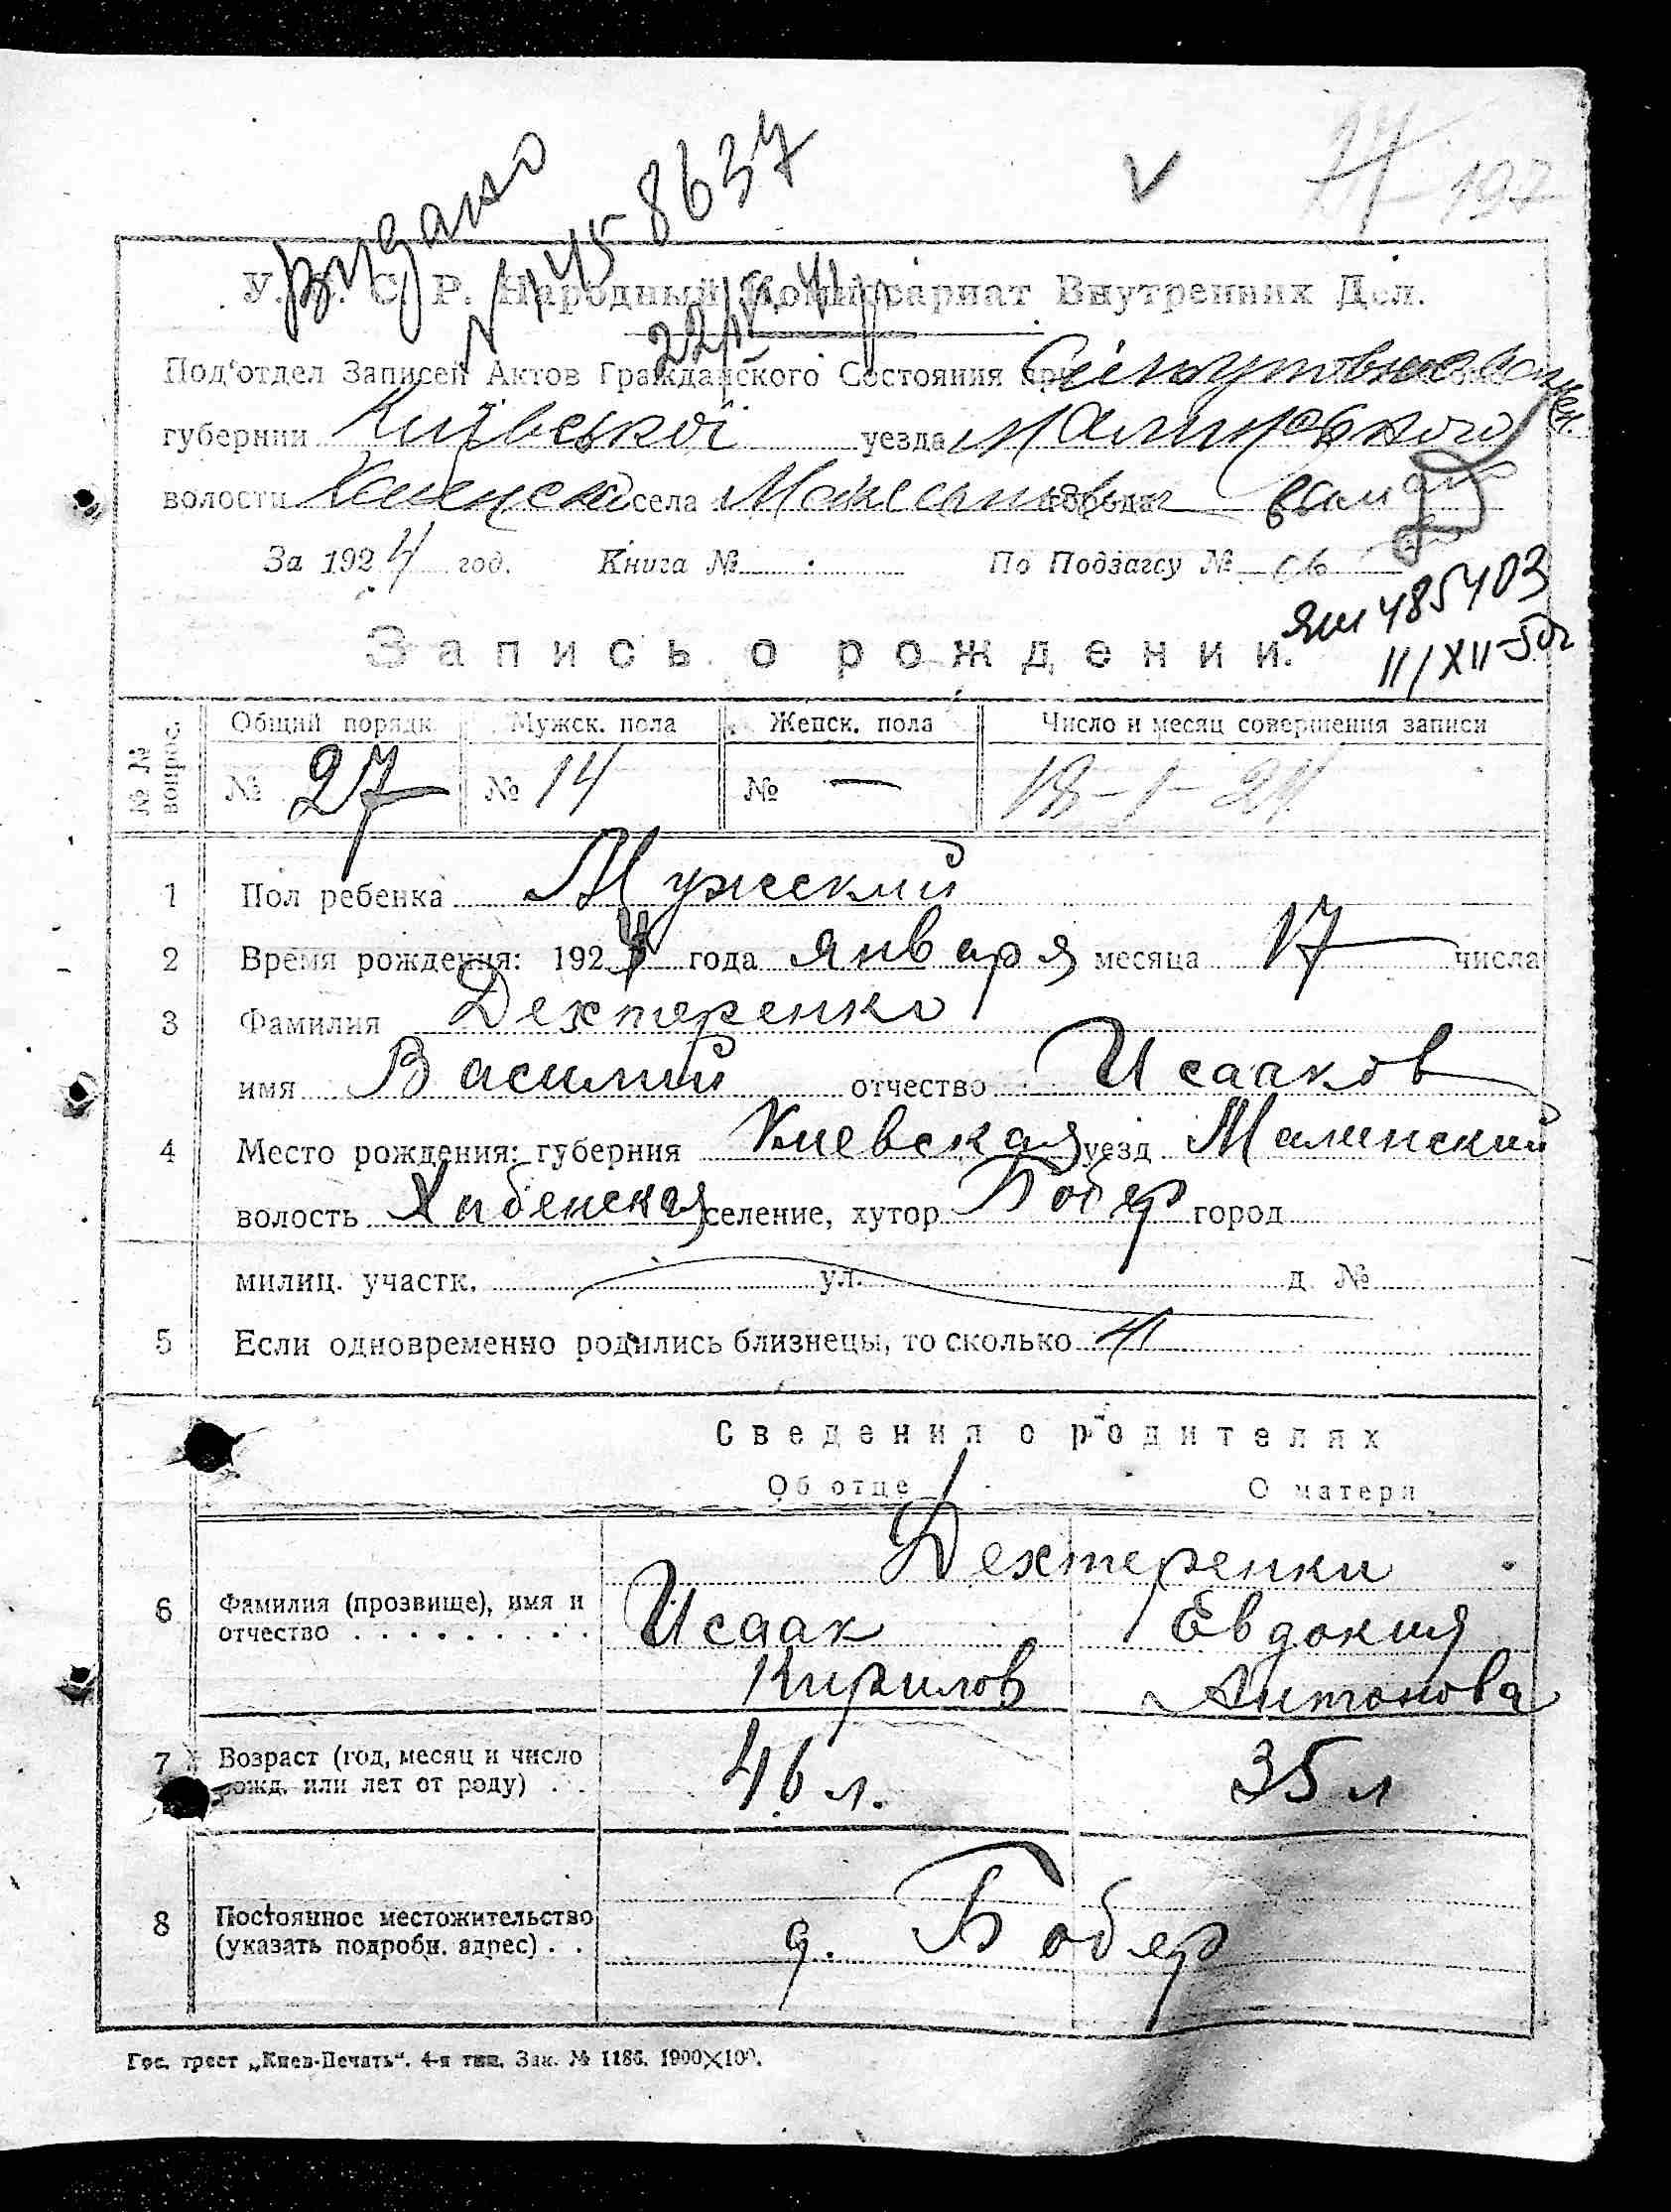 27 197
видано
N 1458637
У. С. С. Р. Народный Комиссариат Внутренних Дел.
Под'отдел Записей Актов Гражданского Состояния при
губернии Київської уезда
волости села города
За 1924 год. Книга № По Подзагсу №
485403
11/XII-50г
Запись о рождении.
№№ вопрос. Общий порядк. Мужск. пола Женск. пола Число и месяц совершения записи
№ 27 № 14 № — 18-1-24
1 Пол ребенка Мужеский
2 Время рождения: 1924 года января месяца 17 числа
3 Фамилия Дехтеренко
имя Василий отчество Исааков
4 Место рождения: губерния Киевская уезд Малинский
волость Хабенская селение, хутор Бобер город
милиц. участк. ул. д. №
5 Если одновременно родились близнецы, то сколько
Сведения о родителях
Об отце О матери
Дехтеренки
6 Фамилия (прозвище), имя и отчество . . . . . . . . . Исаак Евдокия
Кирилов Антонова
7 Возраст (год, месяц и число рожд. или лет от роду) . . 46 л. 35 л
8 Постоянное местожительство (указать подробн. адрес) . . д. Бобер
Гос. трест „Киев-Печать“. 4-я тип. Зак. № 1186. 1900×100.